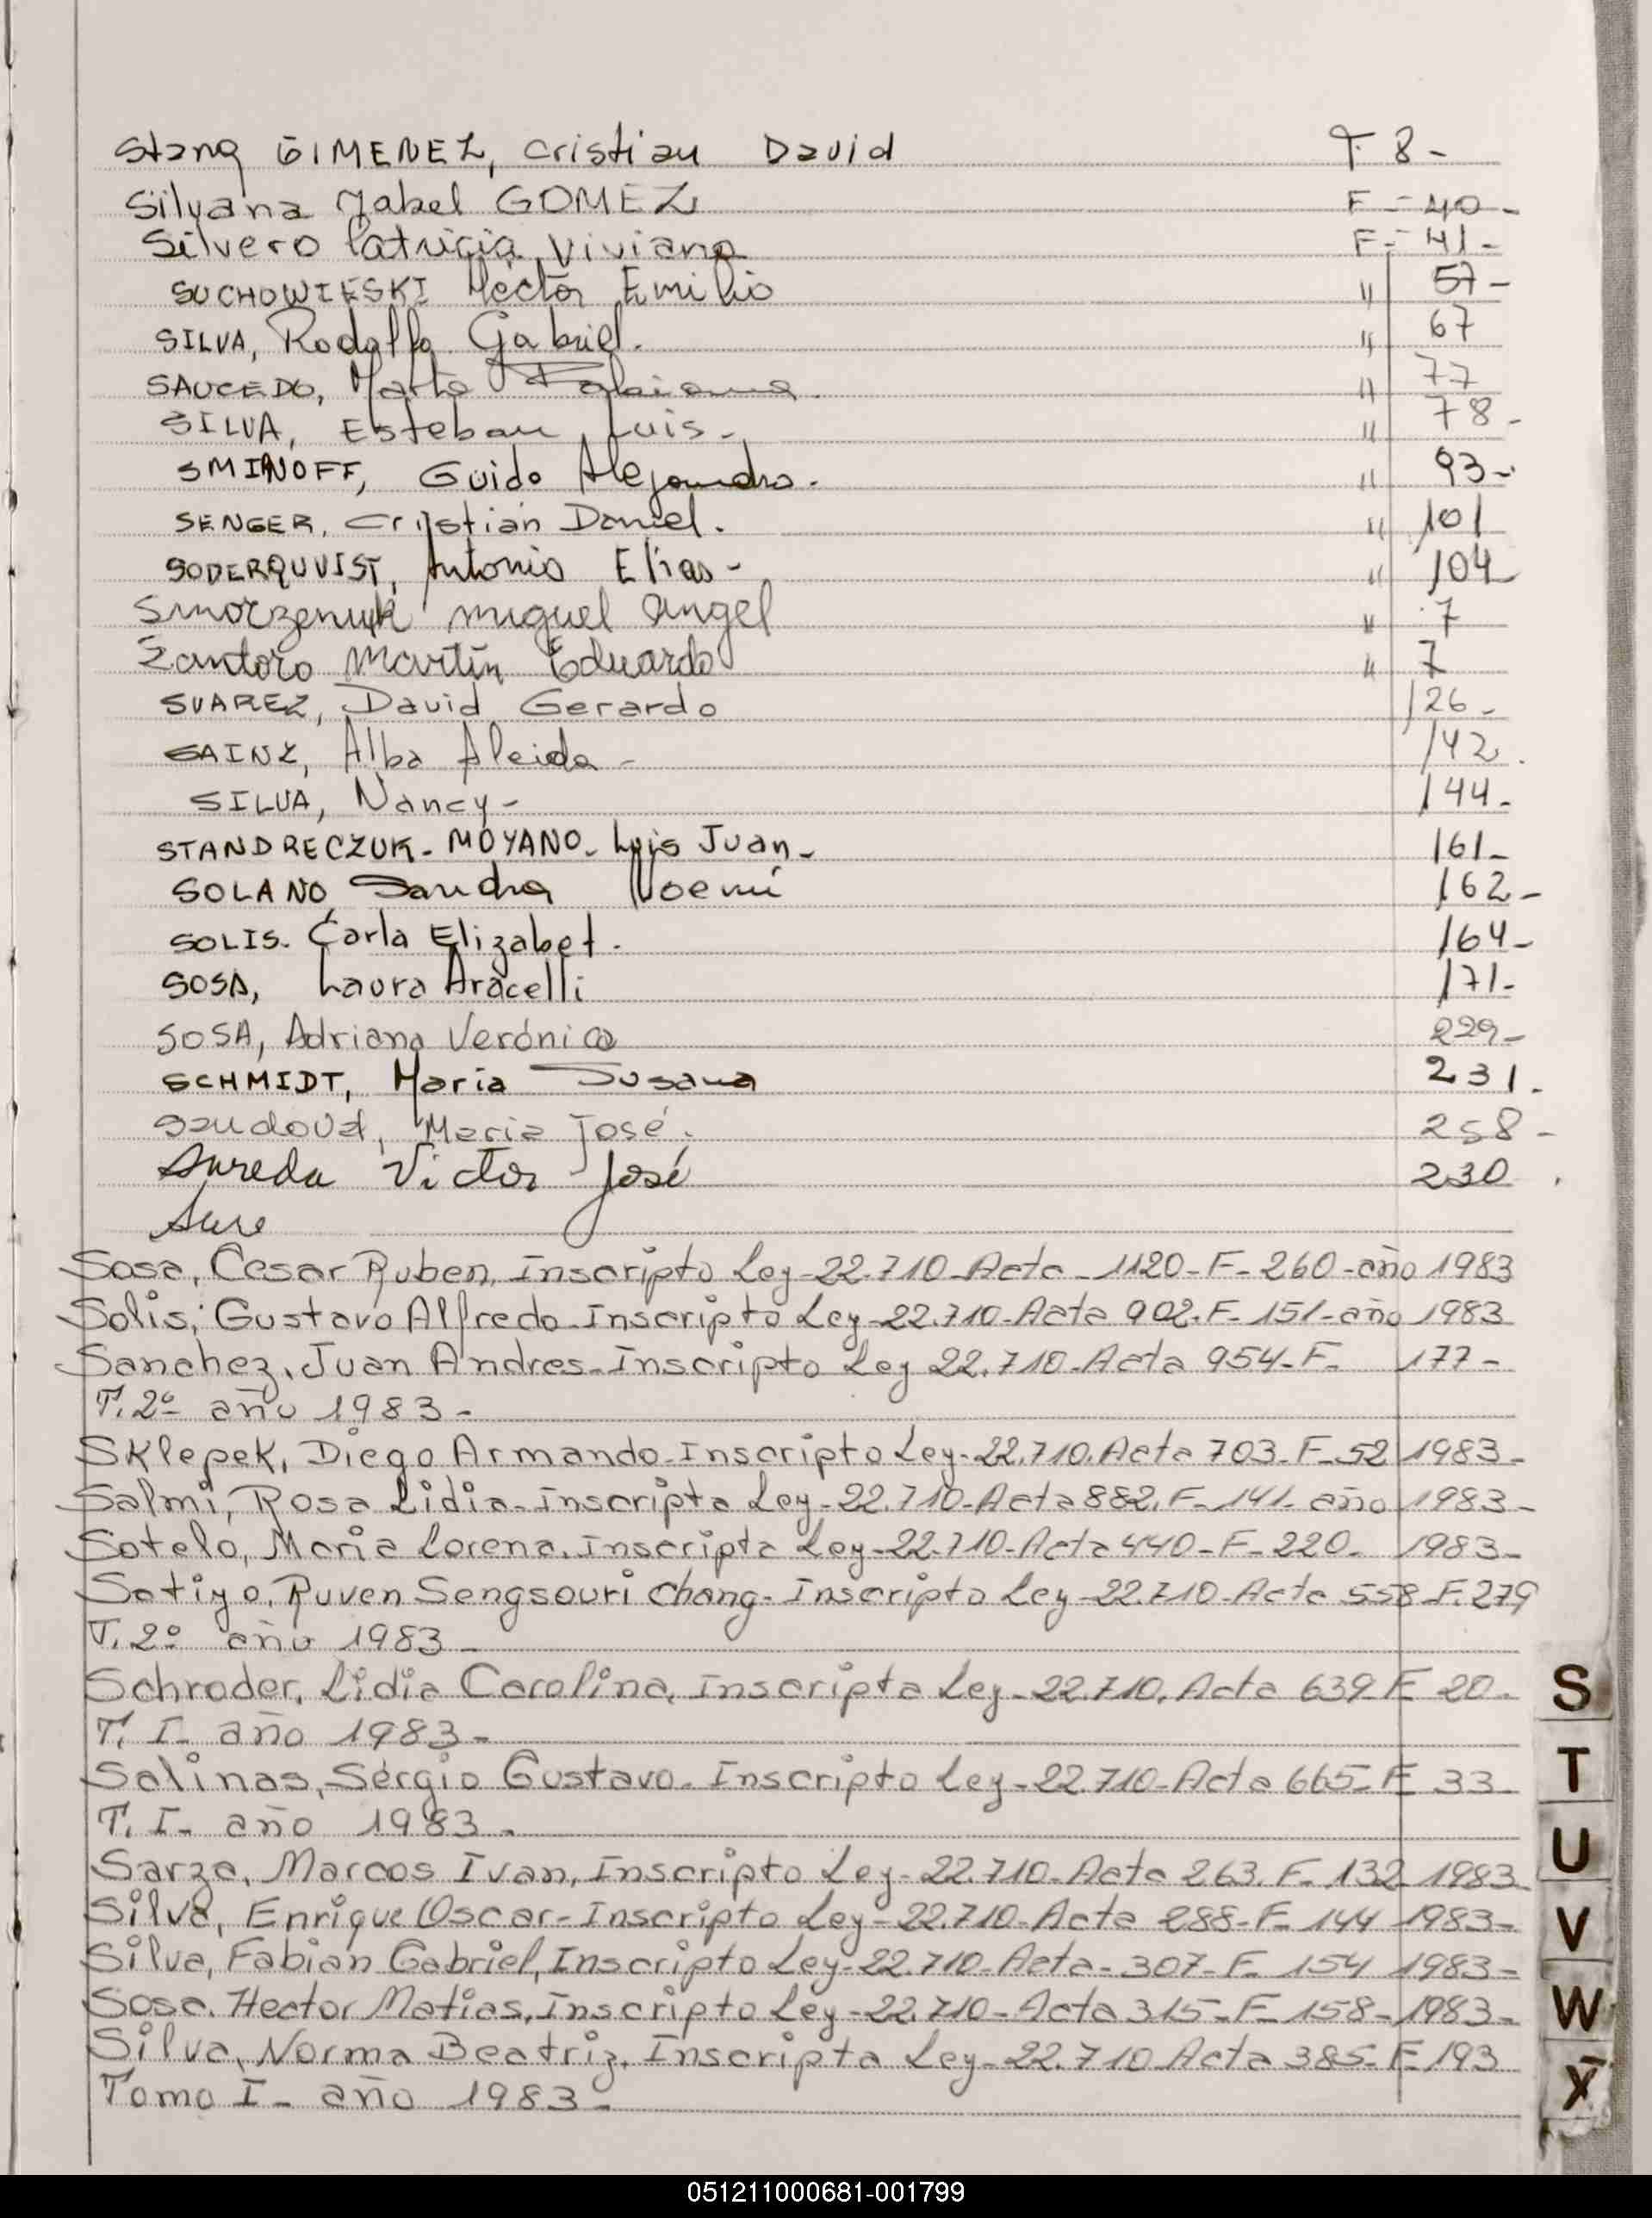 Stang GIMENEZ, Cristian David T 8-
Silvana Yabel GOMEZ F- 40-
Silvero Patricia Viviana F- 41-
SUCHOWIESKI Hector Emilio " 57-
SILVA, Rodolfo Gabriel. " 67
SAUCEDO, Marta Fabiana " 77
SILVA, Esteban Luis- " 78-
SMINOFF, Guido Alejandro. " 93-
SENGER, Cristian Daniel. " 101
SODERQUVIST, Antonio Elias- " 104
Smorzeniuk miguel angel " 7
Zantoro Martin Eduardo " 7
SUAREZ, David Gerardo 126-
SAINZ, Alba Aleida- 142
SILVA, Nancy- 144-
STANDRECZUK-MOYANO- Luis Juan- 161-
SOLANO, Sandra Noemi 162-
SOLIS. Carla Elizabet. 164-
SOSA, Laura Aracelli 171-
SOSA, Adriana Verónica 229-
SCHMIDT, Maria Susana 231.
Sandoval, Maria José. 258-
Sureda Victor José 230
Sure
Sosa, Cesar Ruben, Inscripto Ley-22.710-Acta-1120-F-260-año 1983
Solis, Gustavo Alfredo-Inscripto Ley-22.710-Acta 902-F-151-año 1983
Sanchez, Juan Andres-Inscripto Ley 22.710-Acta 954-F- 177-
T. 2º año 1983-
Sklepek, Diego Armando-Inscripto Ley-22.710.Acta 703-F-52 1983-
Salmi, Rosa Lidia-inscripta Ley-22.710-Acta 882.F-141-año 1983-
Sotelo, Maria Lorena, Inscripta Ley-22.710-Acta 440-F-220- 1983-
Sotiyo, Ruven Sengsouri Chang-Inscripto Ley-22.710-Acta 558-F.279
T. 2º año 1983-
Schroder, Lidia Carolina, inscripta Ley-22.710. Acta 639-F 20-
T. I- año 1983-
Salinas, Sergio Gustavo-Inscripto Ley-22.710-Acta 665-F 33
T. I- año 1983-
Sarza, Marcos Ivan, Inscripto Ley-22.710-Acta 263. F- 132 1983-
Silva, Enrique Oscar-Inscripto Ley-22.710-Acta 288-F- 144 1983-
Silva, Fabian Gabriel, Inscripto Ley-22.710-Acta-307-F- 154 1983-
Sosa. Hector Matias, Inscripto Ley-22.710-Acta 315-F-158-1983-
Silva, Norma Beatriz, Inscripta Ley-22.710 Acta 385-F-193
Tomo I- año 1983-
S
T
U
V
W
X
051211000681-001799